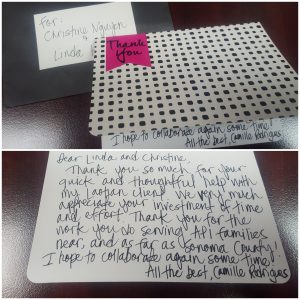 For:
Christine Nguyen
&
Linda
Thank
you
I hope to collaborate again some time!
All the best, Camille Rodrigues
Dear Linda and Christine,
Thank you so much for your
quick and thoughtful help with
my Laotian client. We very much
appreciate your investment of time
and effort. Thank you for the
work you do serving API families
near, and as far as Sonoma County!
I hope to collaborate again some time!
All the best, Camille Rodrigues